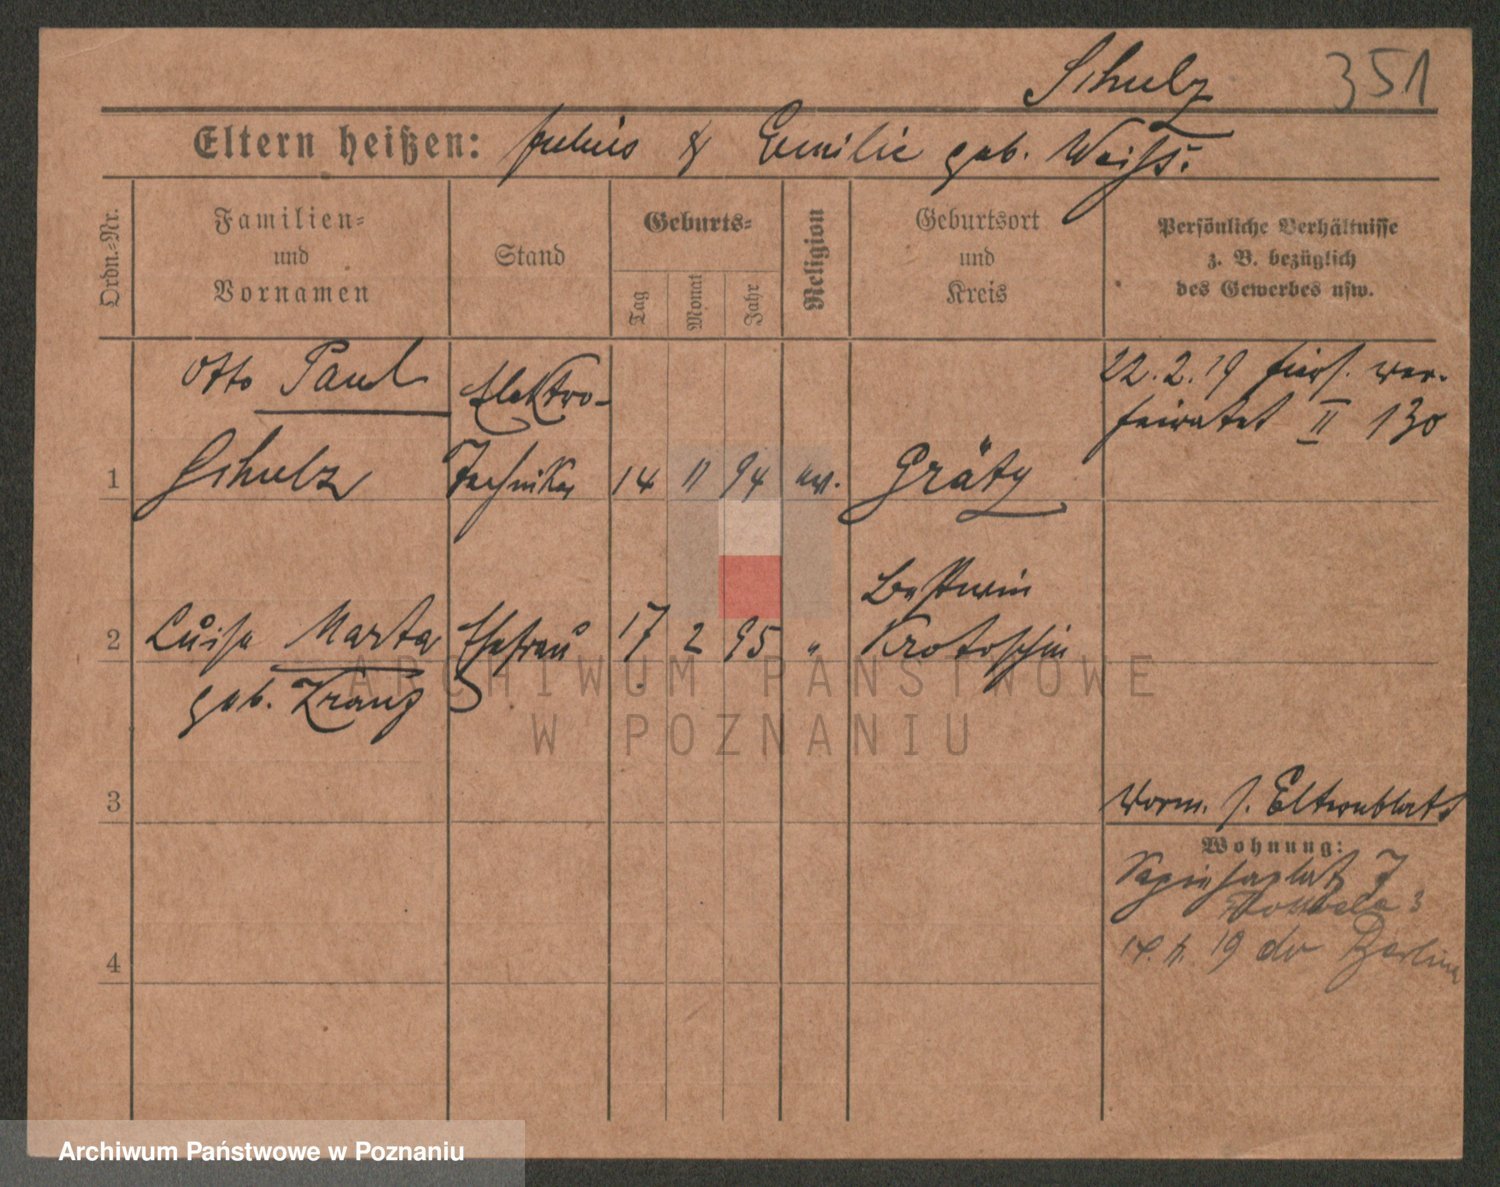 Schulz 351
Eltern heißen: Julius & Emilie geb. Weiß.
Ordn.-Nr.
Familien- und Vornamen
Stand
Geburts-
Tag Monat Jahr
Religion
Geburtsort und Kreis
Persönliche Verhältnisse
z. B. bezüglich
des Gewerbes usw.
Otto Paul Elektro- 22.2.19 hiers. ver-
heiratet II 130
1 Schulz Techniker 14 11 94 ev. Grätz
Bestwin
2 Luise Marta Ehefrau 17 2 95 " Krotoschin
geb. Kranz
ARCHIWUM PAŃSTWOWE
W POZNANIU
3 Vorm. s. Elternblatt
Wohnung:
Sapiehaplatz 7
4 19 Berlin
Archiwum Państwowe w Poznaniu